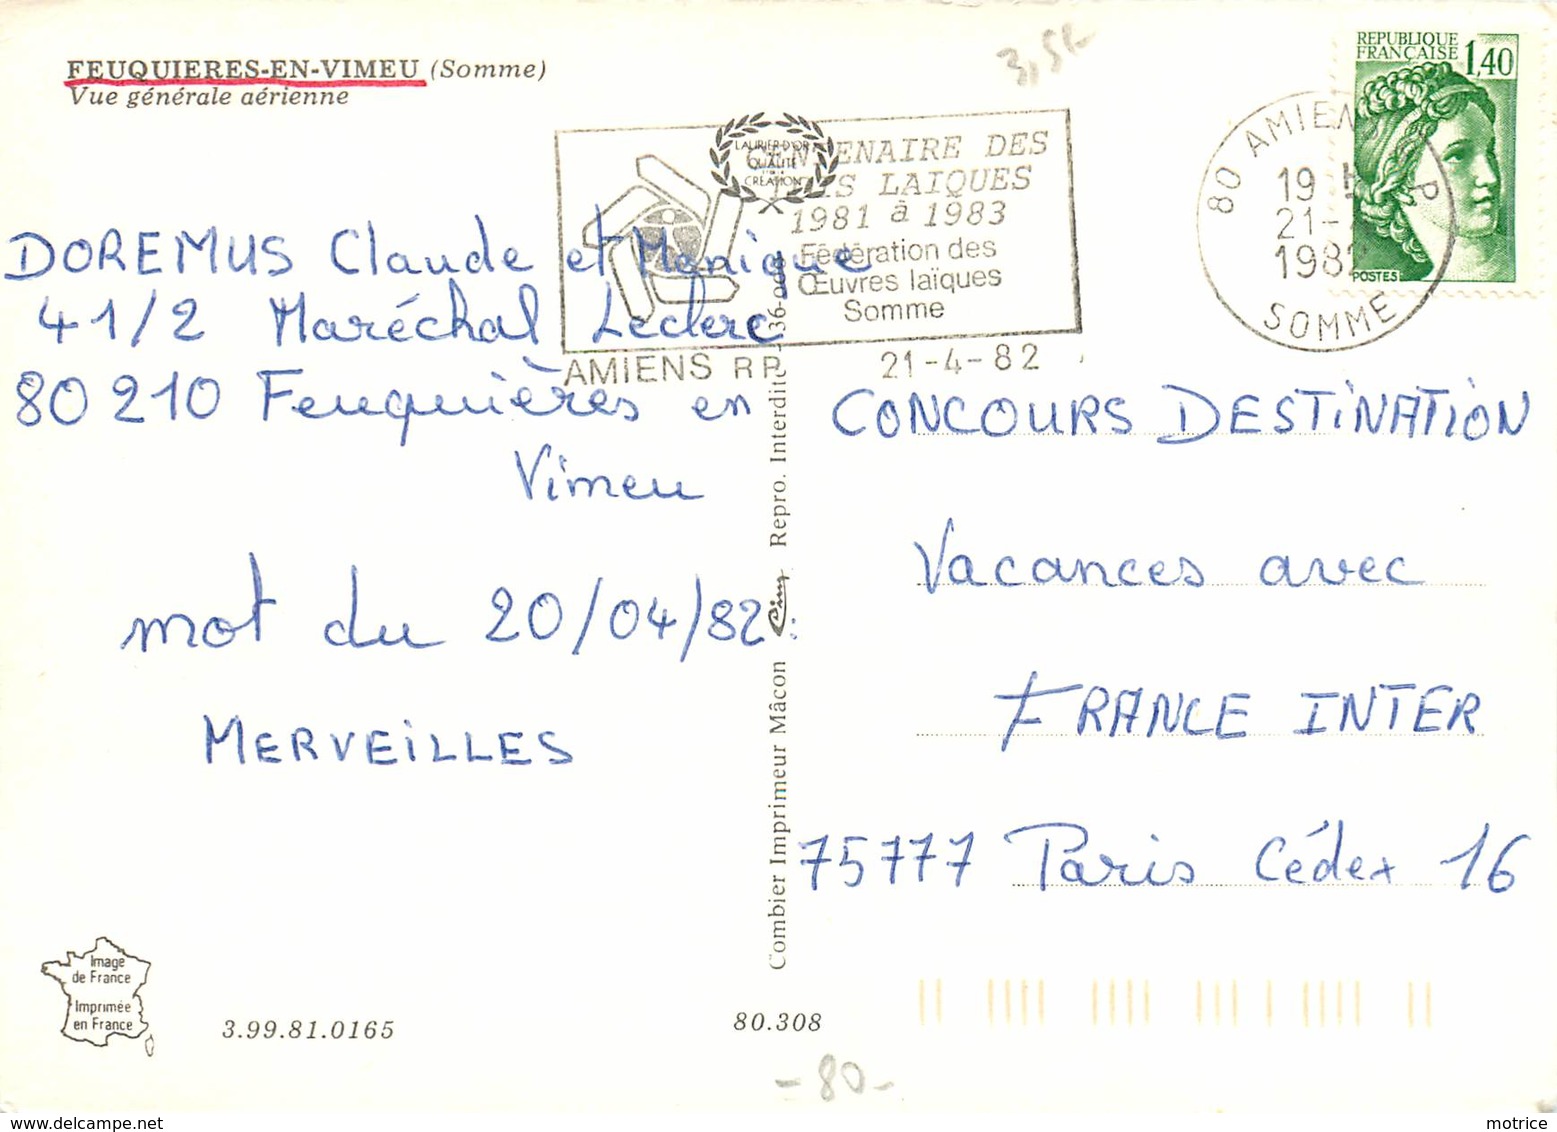 FEUQUIERES-EN-VIMEU (Somme)
Vue générale aérienne
3,5
REPUBLIQUE
FRANÇAISE 1,40
POSTES
80 AMIENS RP
19 H
21-
1982
SOMME
LAURIER D'OR
QUALITÉ
CRÉATION
CENTENAIRE DES
LOIS LAIQUES
1981 à 1983
Fédération des
Œuvres laïques
Somme
AMIENS RP 21-4-82
DOREMUS Claude et Monique
41/2 Maréchal Leclerc
80210 Feuquières en
Vimeu
mot du 20/04/82:
MERVEILLES
Combier Imprimeur Mâcon Cim Repro. Interdite
CONCOURS DESTINATION
Vacances avec
FRANCE INTER
75777 Paris Cédex 16
Image
de France
Imprimée
en France
3.99.81.0165
80.308
-80-
motrice delcampe.net